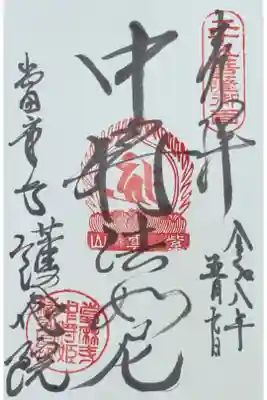 奉拝
中将法如尼
令和八年
五月
當麻寺 護念院
紫雲山
當麻寺
中将姫